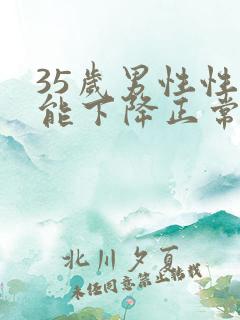 35歲男性性
能下降正常
北川夕夏
未经同意禁止转载